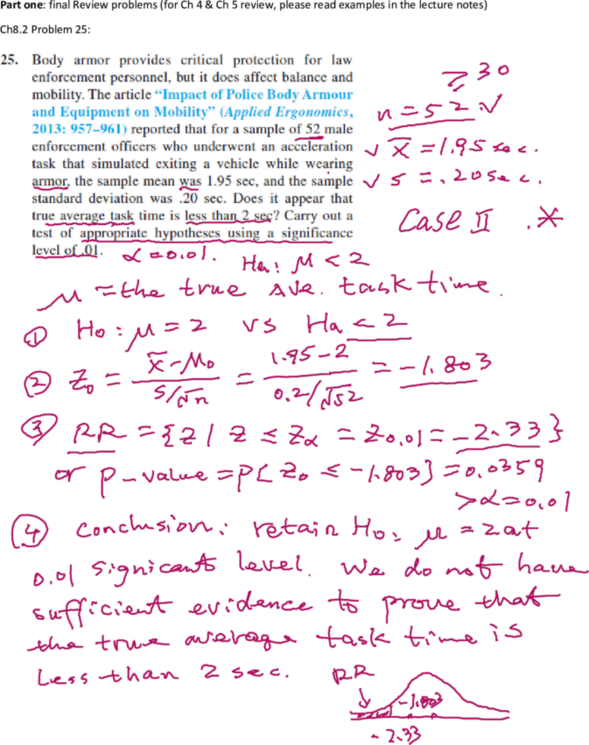 Part one: final Review problems (for Ch 4 & Ch 5 review, please read examples in the lecture notes)
Ch8.2 Problem 25:
25. Body armor provides critical protection for law
enforcement personnel, but it does affect balance and
mobility. The article “Impact of Police Body Armour
and Equipment on Mobility” (Applied Ergonomics,
2013: 957–961) reported that for a sample of 52 male
enforcement officers who underwent an acceleration
task that simulated exiting a vehicle while wearing
armor, the sample mean was 1.95 sec, and the sample
standard deviation was .20 sec. Does it appear that
true average task time is less than 2 sec? Carry out a
test of appropriate hypotheses using a significance
level of .01.
≥ 30
n = 52 ✓
✓ x̄ = 1.95 sec.
✓ s = .20 sec.
Case II .*
α = 0.01. Ha: μ < 2
μ = the true Ave. task time.
① Ho: μ = 2 vs Ha < 2
② Z₀ = (x̄ - μ₀) / (s/√n) = (1.95 - 2) / (0.2/√52) = -1.803
③ RR = {Z | Z ≤ Zα = Z0.01 = -2.33}
or p-value = P{Z₀ ≤ -1.803} = 0.0359
> α = 0.01
④ Conclusion: retain Ho: μ = 2 at
0.01 signicant level. We do not have
sufficient evidence to prove that
the true average task time is
Less than 2 sec.
RR
-1.803
-2.33